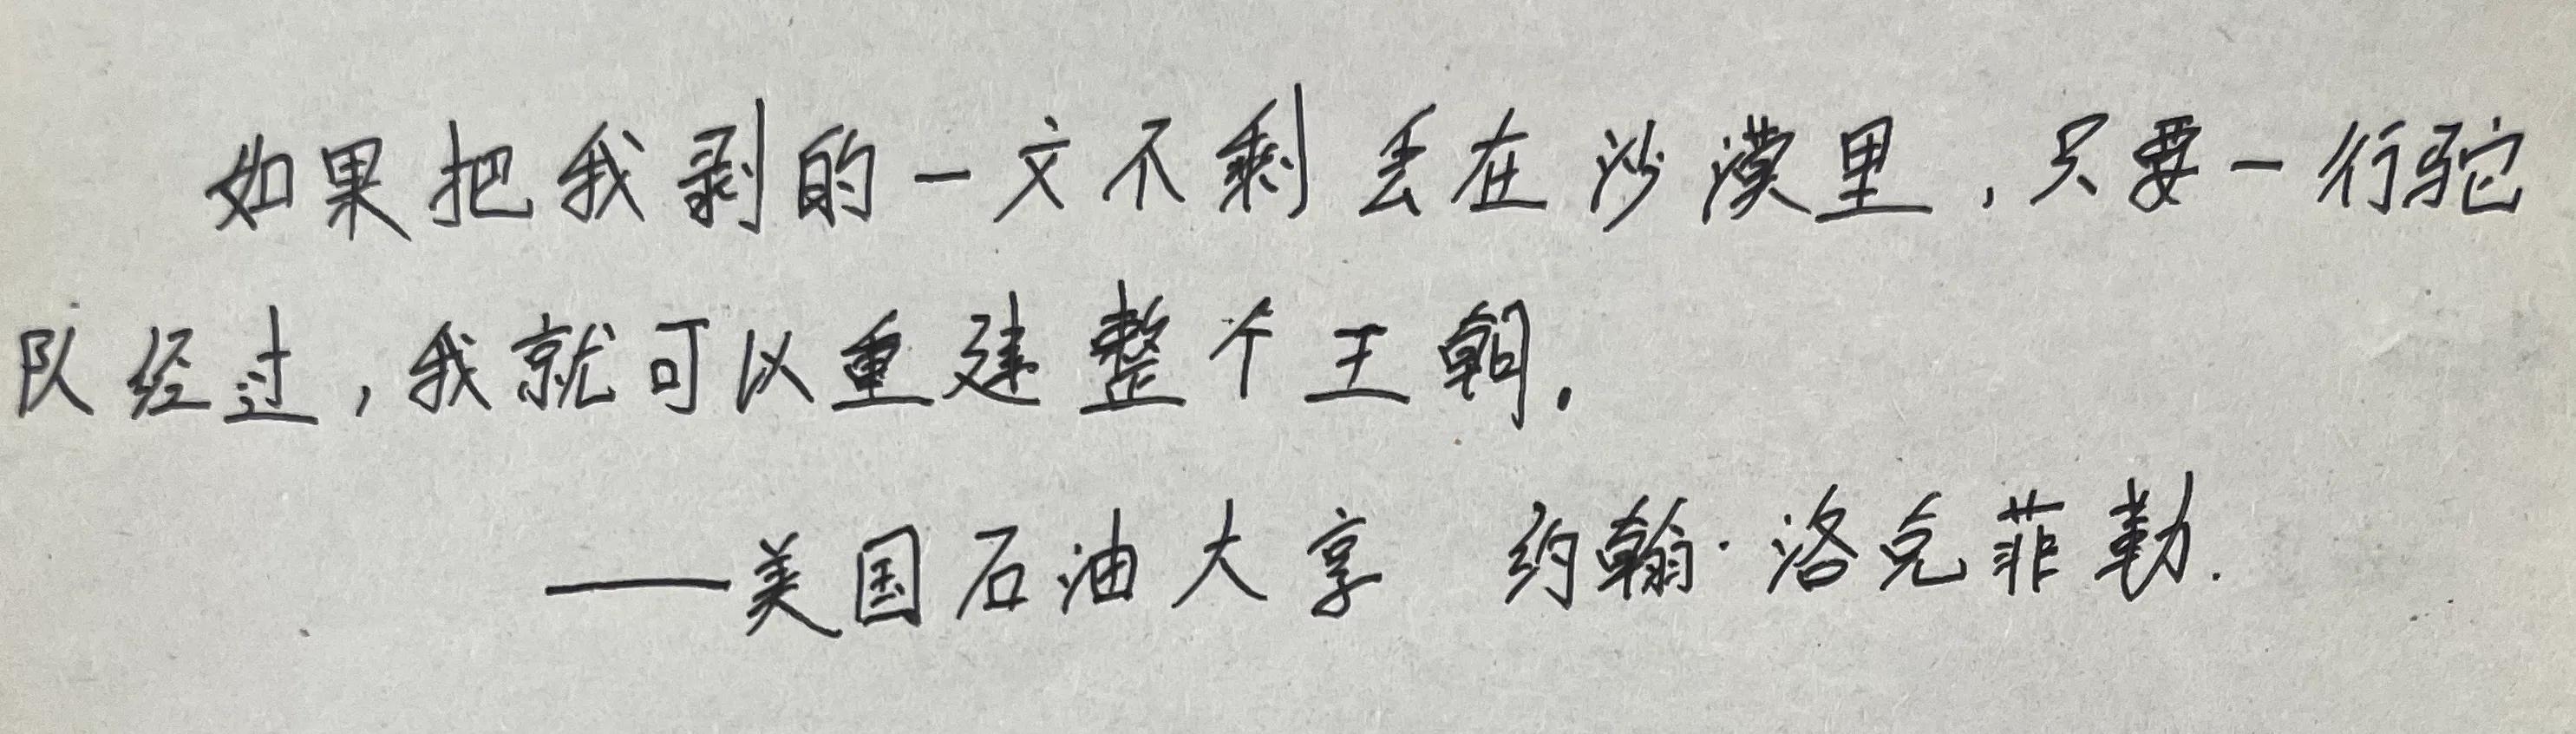 如果把我剥的一文不剩丢在沙漠里,只要一行驼
队经过,我就可以重建整个王朝.
——美国石油大享 约翰·洛克菲勒.